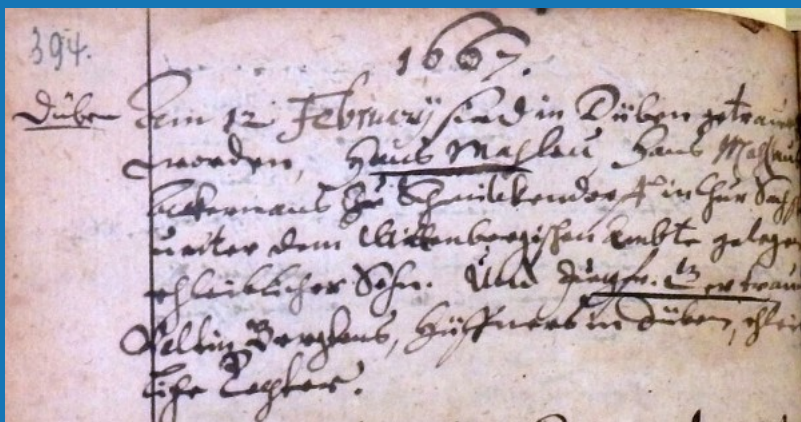 394.
1667.
Düben
Den 12 February sind in Düben getrau
worden, Hans Mahlau, Hans Mahlau
Ackermans zu in Chur Sach
unter dem Wittenbergischen Ambte gelege
ehleiblicher Sohn. Und Jungfr. Gertrau
Valtin Hüffners in Düben, ehlei
liche Tochter.